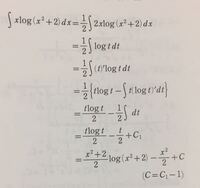 ∫ xlog(x²+2)dx = 1/2 ∫ 2xlog(x²+2)dx
= 1/2 ∫ log t dt
= 1/2 ∫ (t)′log t dt
= 1/2 {tlog t − ∫ t(log t)′dt}
= tlog t/2 − 1/2 ∫ dt
= tlog t/2 − t/2 + C₁
= x²+2/2 log(x²+2) − x²/2 + C
(C=C₁−1)